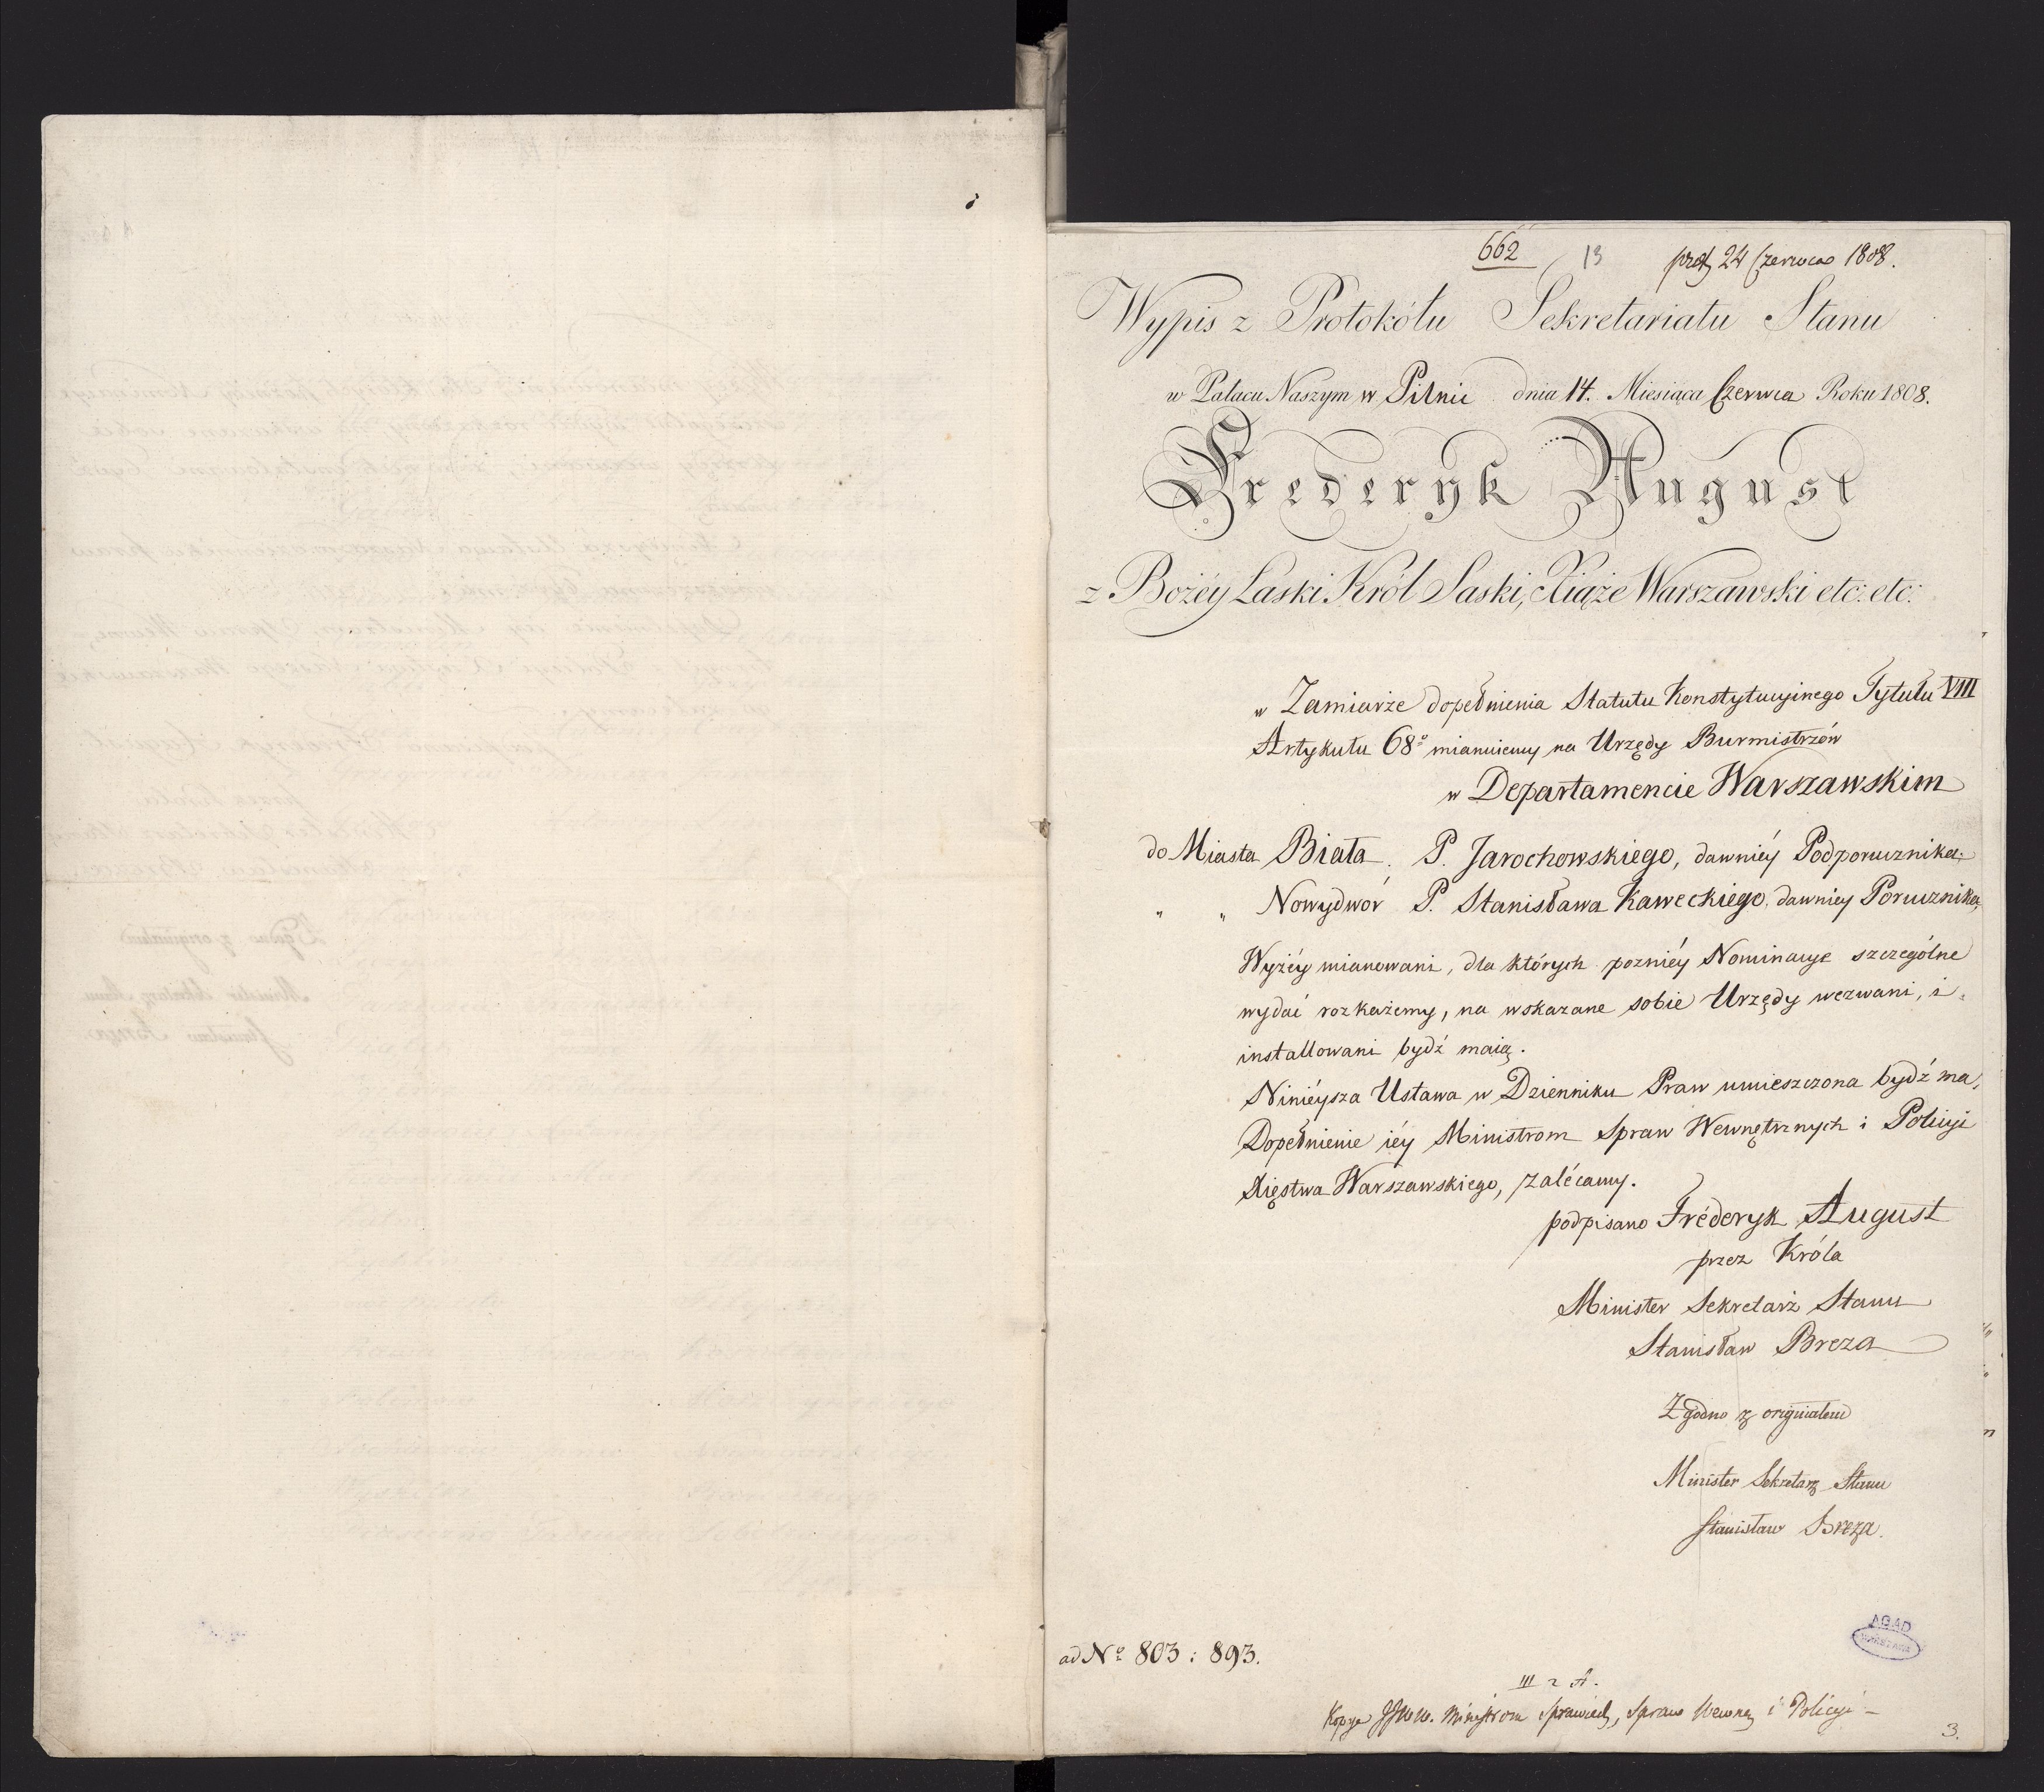 662 13 24 Czerwca 1808.
Wypis z Protokółu Sekretariatu Stanu
w Pałacu Naszym w Pilnic dnia 14. Miesiąca Czerwca Roku 1808.
Frederyk August
z Bożéy Łaski Król Saski, Xiąże Warszawski etc: etc:
w Zamiarze dopełnienia Statutu Konstytucyinego Tytułu VIII
Artykułu 68º mianuiemy na Urzędy Burmistrzów
w Departamencie Warszawskim
do Miasta Biała. P. Jarochowskiego, dawniéy Podporucznika;
" " Nowydwór P. Stanisława Kaweckiego, dawniey Porucznika,
Wyżéy mianowani, dla których pozniéy Nominacye szczególne
wydać rozkażemy, na wskazane sobie Urzędy wezwani, i
installowani bydź maią.
Niniéysza Ustawa w Dzienniku Praw umieszczona bydź ma,
Dopełnienie iéy Ministrom Spraw Wewnętrznych i Policyi
Xięstwa Warszawskiego, zalécamy.
podpisano Fréderyk August
przez Króla
Minister Sekretarz Stanu
Stanisław Breza
Zgodno z originałem
Minister Sekretarz Stanu
Stanisław Breza.
AGAD
ad Nº 803: 893.
III 2 A.
Kopye JJWW. Ministrom Sprawied, Spraw Wewnę i Policyi –
3.